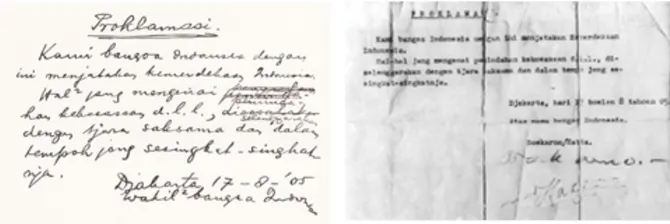 Proklamasi.
Kami bangsa Indonesia dengan
ini menjatakan kemerdekaan Indonesia.
Hal² jang mengenai
kekoeasaan d.l.l.,
dengan tjara saksama dan dalam
tempoh jang sesingkat-singkat
nja.
Djakarta 17-8-'05
Wakil² bangsa Indonesia
PROKLAMASI
Kami bangsa Indonesia dengan ini menjatakan Kemerdekaan
Indonesia.
Hal-hal jang mengenai pemindahan kekoeasaan d.l.l., di-
selenggarakan dengan tjara saksama dan dalam tempo jang se-
singkat-singkatnja.
Djakarta, hari 17 boelan 8 tahoen 05
Atas nama bangsa Indonesia.
Soekarno/Hatta.